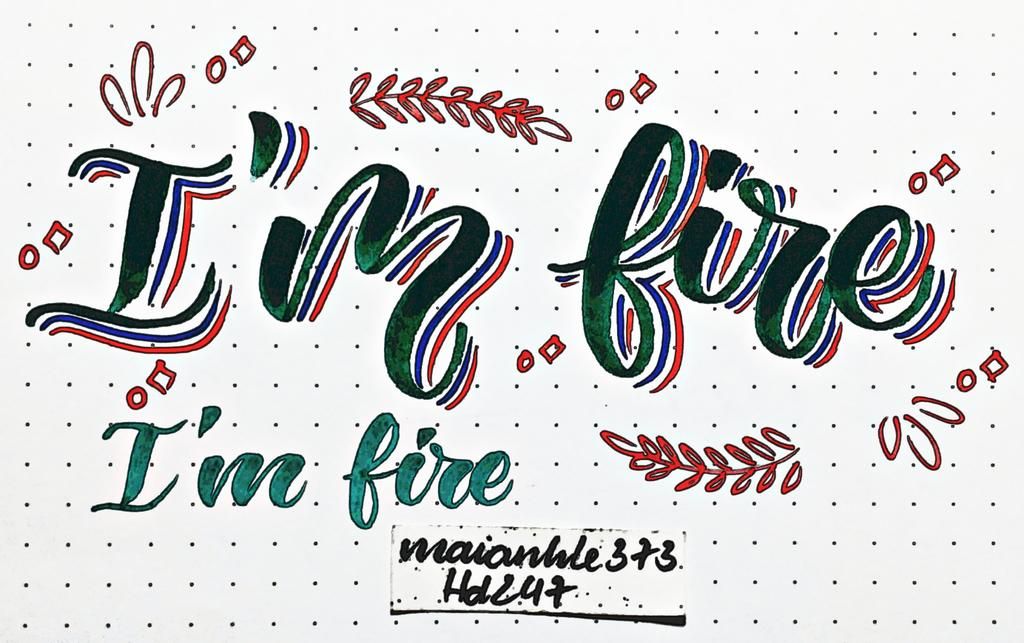 I'm fire
I'm fire
maianhle373
Hd247